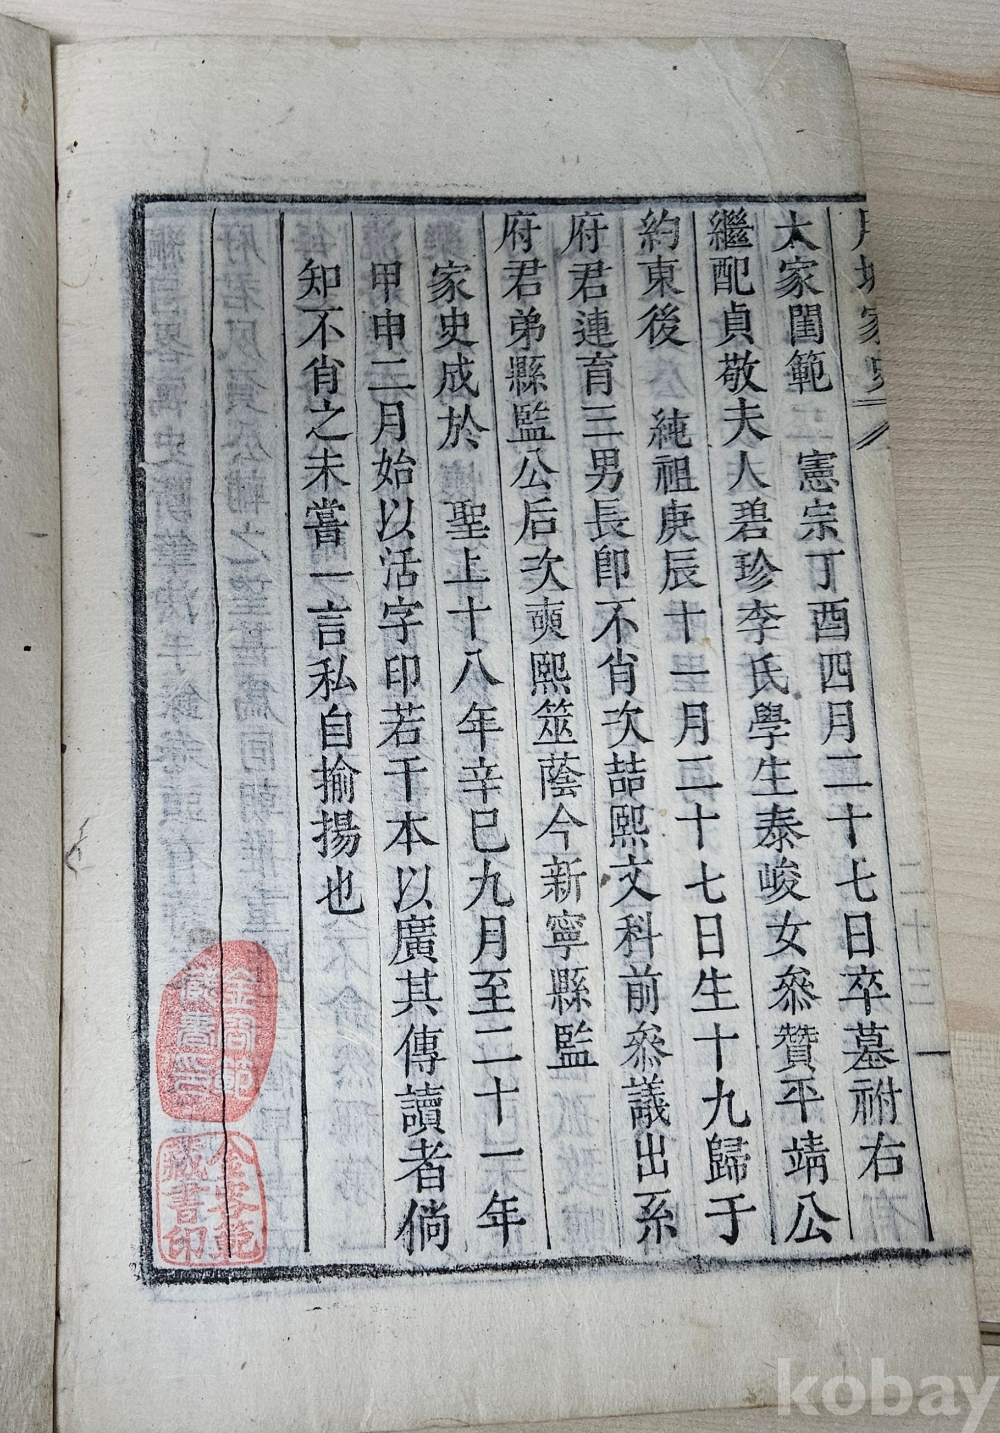 太家閨範 憲宗丁酉四月二十七日卒墓祔右
繼配貞敬夫人碧珍李氏學生泰峻女叅贊平靖公
約東後 純祖庚辰十一月二十七日生十九歸于
府君連育三男長卽不肖次喆熙文科前叅議出系
府君弟縣監公后次奭熙筮蔭今新寧縣監
家史成於 聖上十八年辛巳九月至二十一年
甲申二月始以活字印若干本以廣其傳讀者倘
知不肖之未嘗一言私自揄揚也
二十三
藏書印
kobay